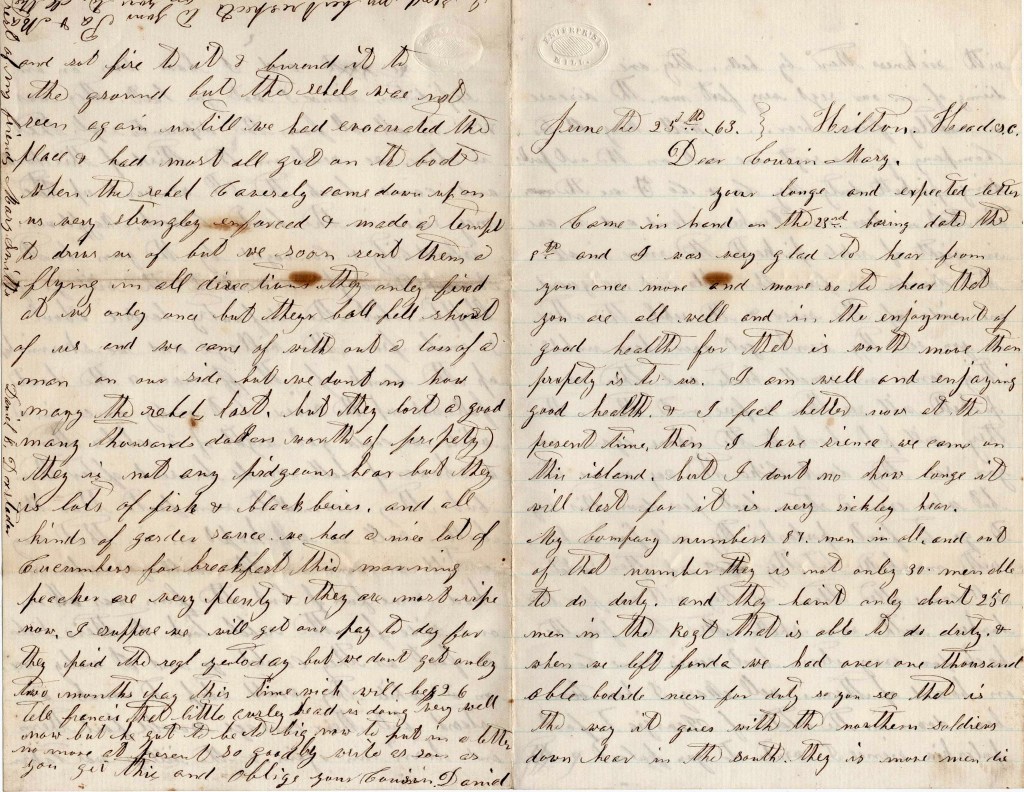 ENTERPRISE
MILL.
June the 25th .63. } Hilton. Head. s.c.
Dear Cousin Mary.
your longe and expected letter
Came in hand on the 22nd baring date the
8th and I was very glad to hear from
you once more and more so to hear that
you are all well and in the enjoyment of
good health for that is worth more than
propety is to us. I am well and enjoying
good health. & I feel better now at the
present time, than I have sience we came on
this island. but I dont no how longe it
will last for it is very sickley hear.
My Company numbers 87. men in all. and out
of that number they is not onley 30. men able
to do duty. and they haint onley about 250
men in the Regt that is able to do duty. &
when we left fonda we had over one thousand
able bodide men for duty so you see that is
the way it goes with the northern soldiers
down hear in the south. they is more men die
and sot fire to it & burend it to
the ground but the rebels was not
seen again untill we had evacuated the
place & had most all got on the bote
when the rebel Caverely came down upon
us very strongley enforced & made a tempt
to drive us of but we soon sent them a
flying in all directions they onley fired
at us onley once but theyr ball fell short
of us and we came of with out a loss of a
man on our side but we dont no how
many the rebel lost. but they lost a good
many thousands dollars worth of propety
they is not any pidgeons hear but they
is lots of fish & blackberies. and all
kinds of garden sauce we had a nice lot of
Cucumbers for breakfast this morning
peaches are very plenty & they are most ripe
now, I suppose we will get our pay to day for
they paid the regt yestoday but we dont get onley
two months pay this time wich will be $26
tele francis that little curley head is doing very well
now but he got to be to big now to put in a letter
no more at present so good by write as soon as
you get this and oblige your Cousin. Daniel
best respects to your Pa & Ma
of my friends Mary Smith
Daniel C